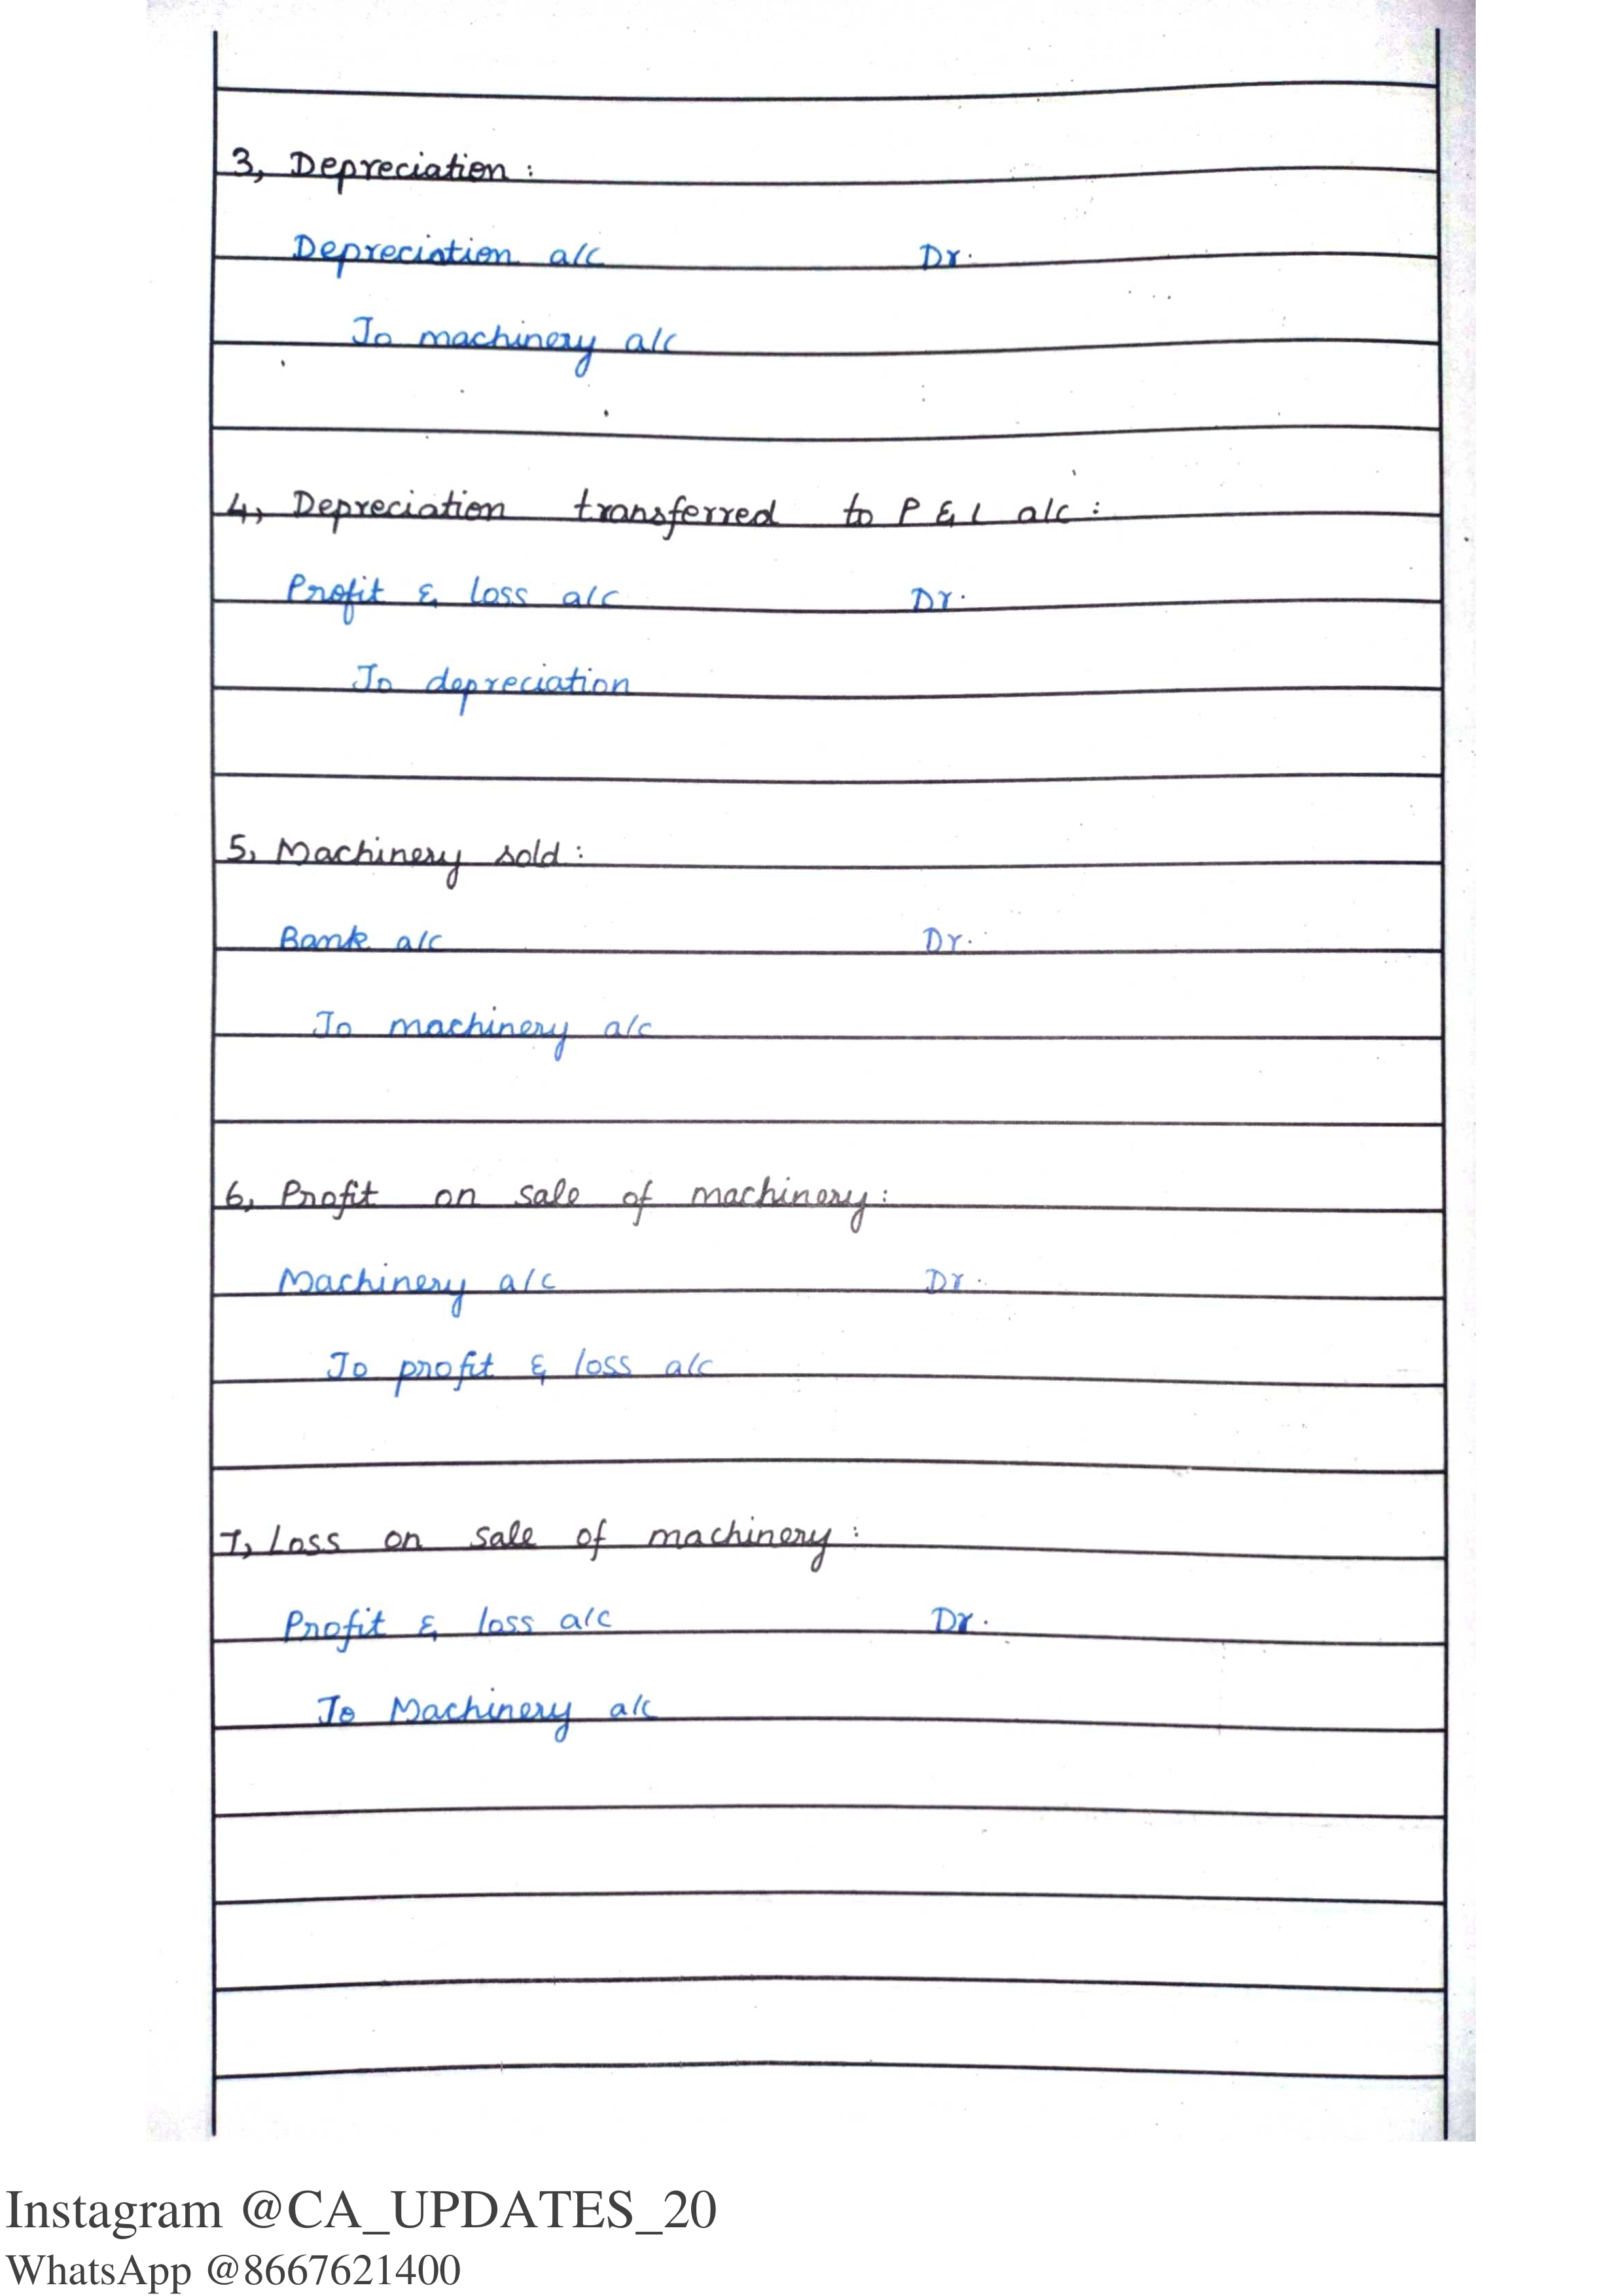 3, Depreciation :
Depreciation a/c Dr.
To machinery a/c
4, Depreciation transferred to P & L a/c :
Profit & loss a/c Dr.
To depreciation
5, Machinery sold :
Bank a/c Dr.
To machinery a/c
6, Profit on sale of machinery :
Machinery a/c Dr.
To profit & loss a/c
7, Loss on sale of machinery :
Profit & loss a/c Dr.
To Machinery a/c
Instagram @CA_UPDATES_20
WhatsApp @8667621400